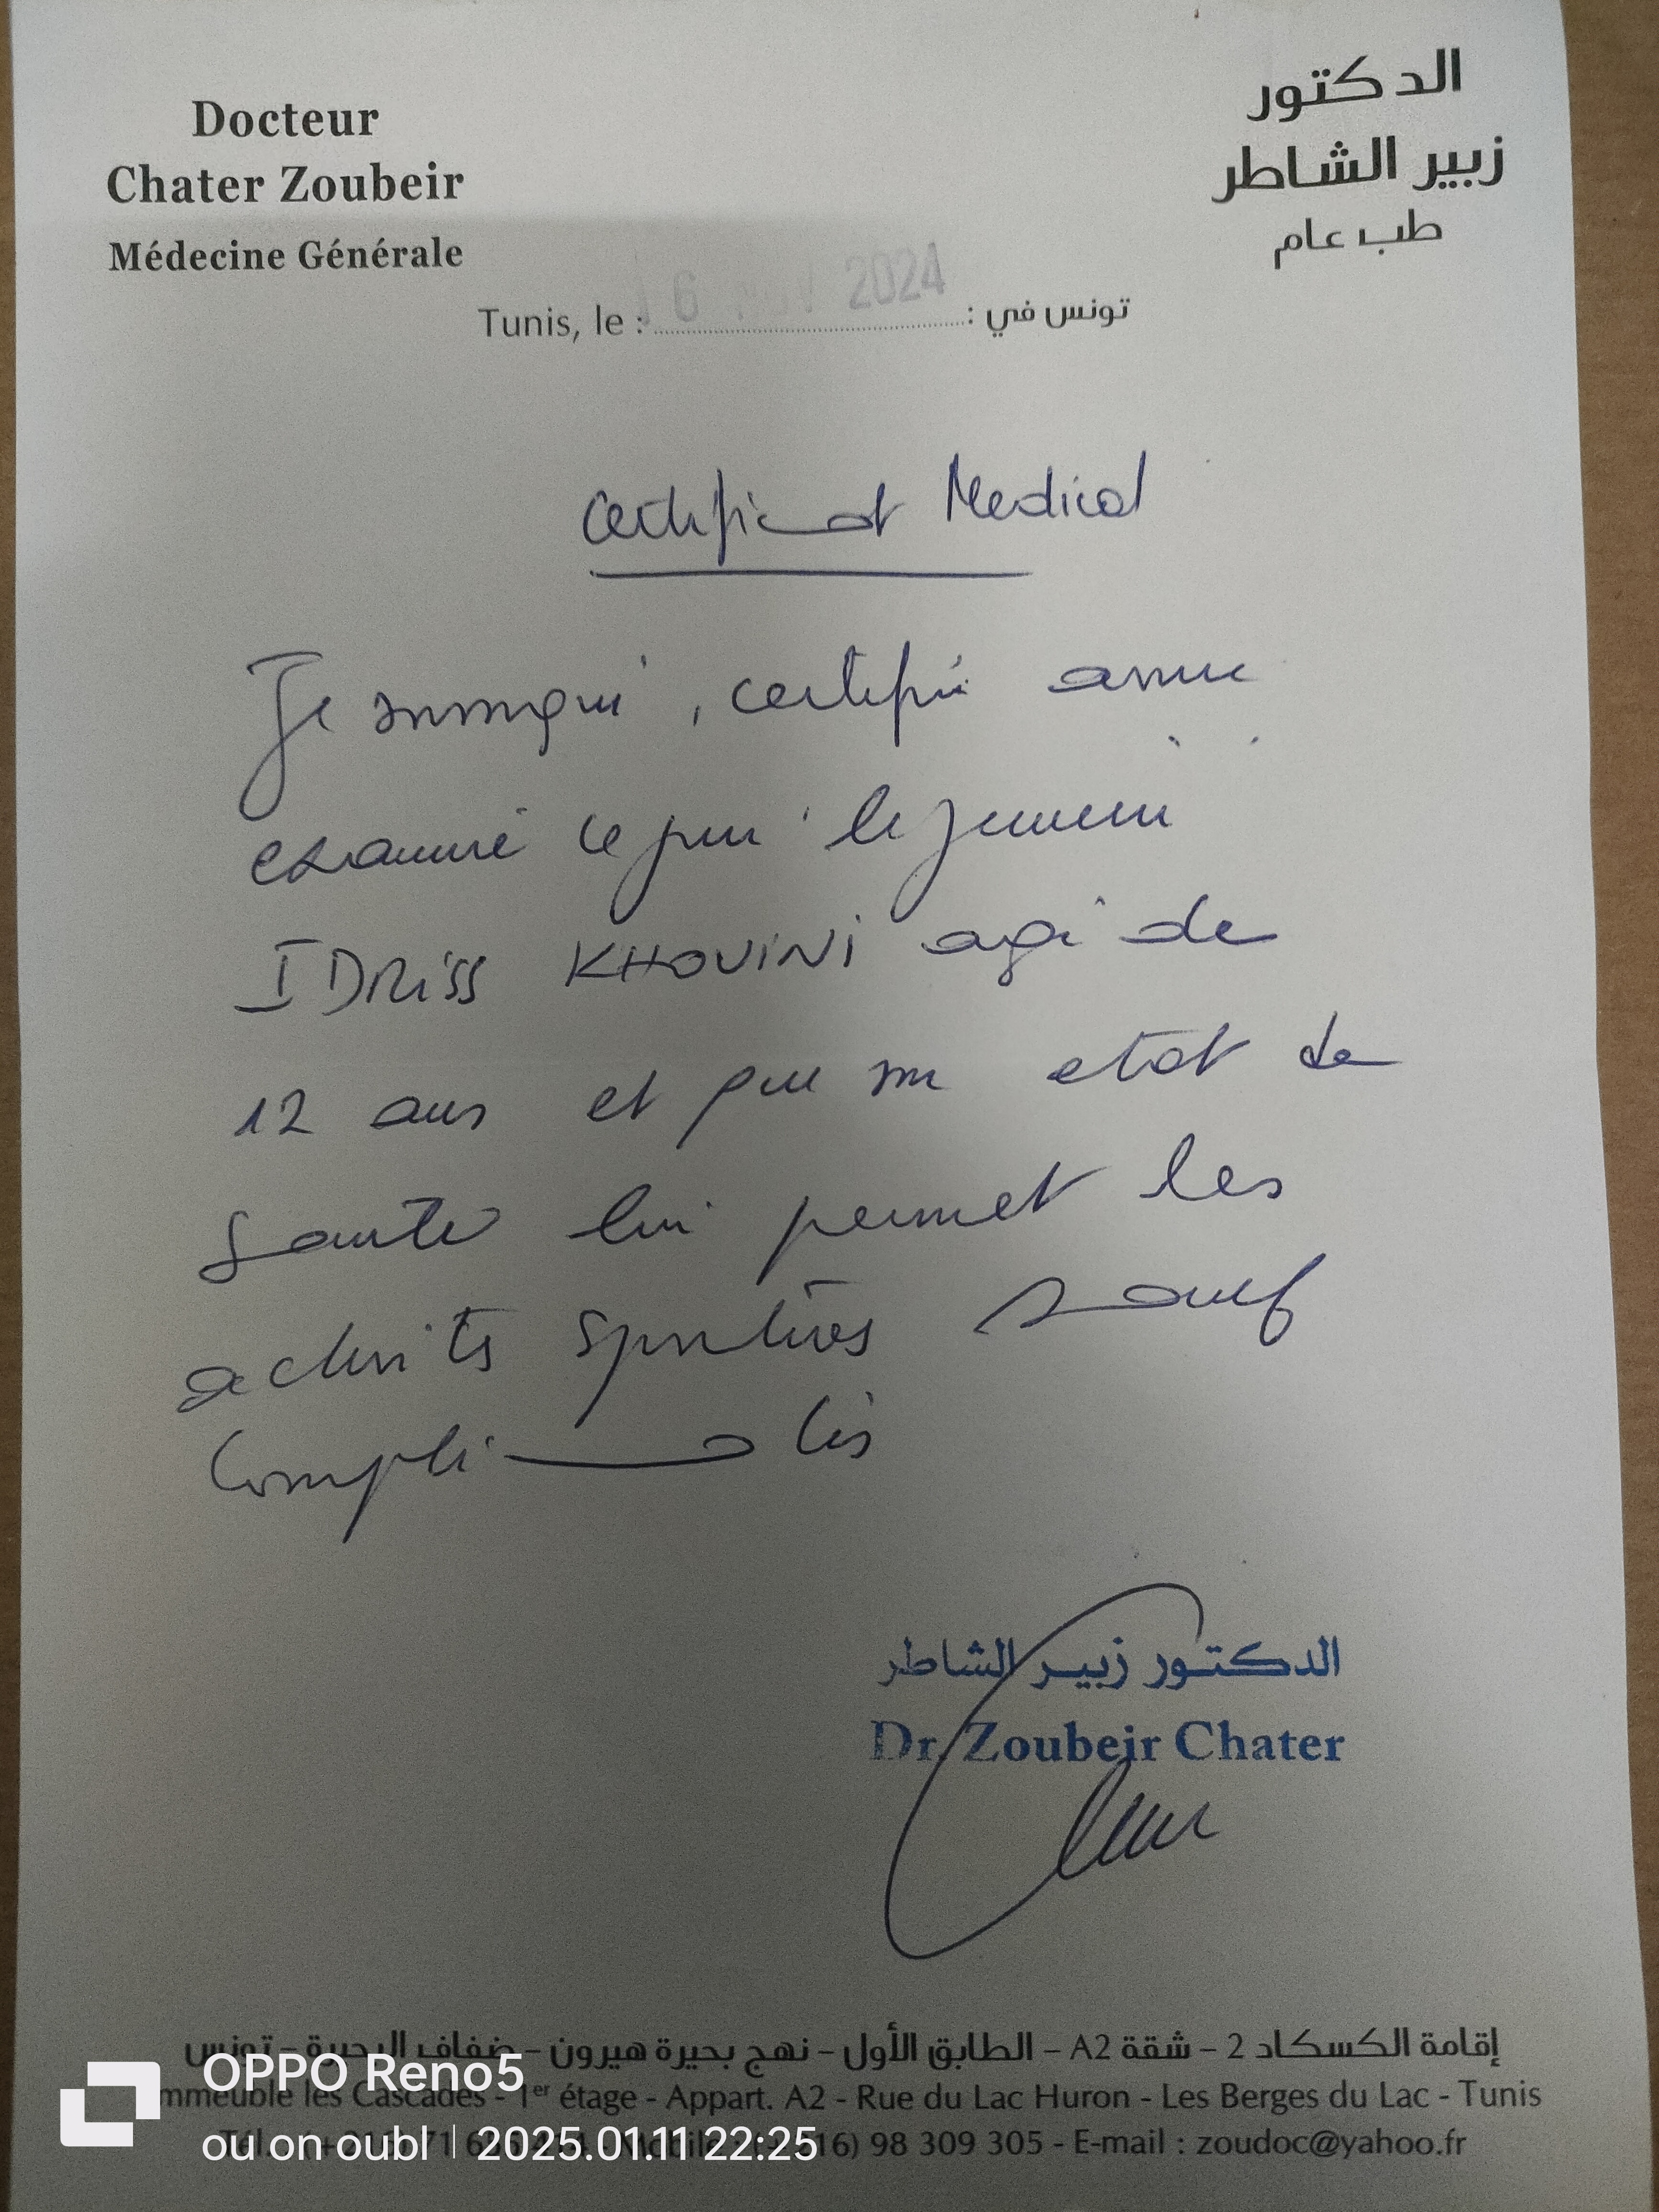 Docteur
Chater Zoubeir
Médecine Générale
الدكتور
زبير الشاطر
طب عام
16 2024
Tunis, le : تونس في :
Certificat Medical
Je soussigné, certifie avoir
examiné ce jour le jeune
IDRISS KHOUINI agé de
12 ans et que son etat de
Santé lui permet les
activités sportives sauf
Complications
الدكتور زبير الشاطر
Dr. Zoubeir Chater
إقامة الكسكاد 2 – شقة A2 – الطابق الأول – نهج بحيرة هيرون – ضفاف البحيرة – تونس
mmeuble les Cascades - 1er étage - Appart. A2 - Rue du Lac Huron - Les Berges du Lac - Tunis
Tél. 71 Mobile : 16) 98 309 305 - E-mail : zoudoc@yahoo.fr
OPPO Reno5
ou on oubl | 2025.01.11 22:25